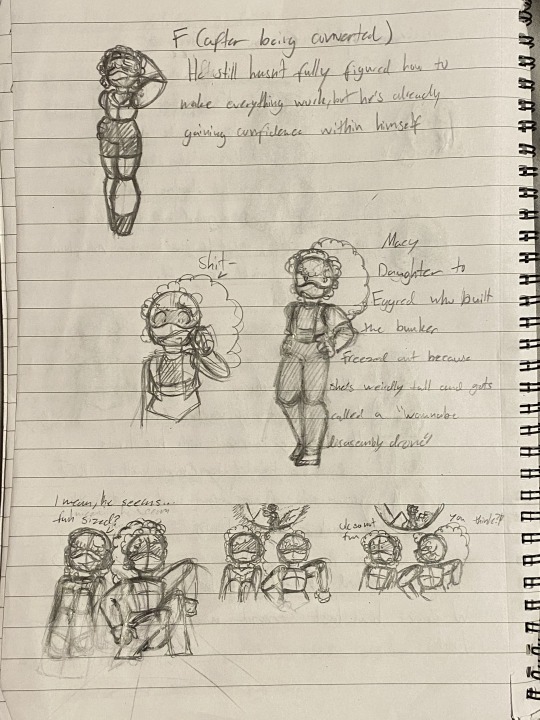 F (after being converted)
He still hasn't fully figured how to
make everything work, but he's already
gaining confidence within himself
Shit-
Macy
Daughter to
who built
the bunker
Freezed out because
she's weirdly tall and gets
called a "wannabe
disassembly drone"
I mean, he seems...
fun sized?
fun
You think?!